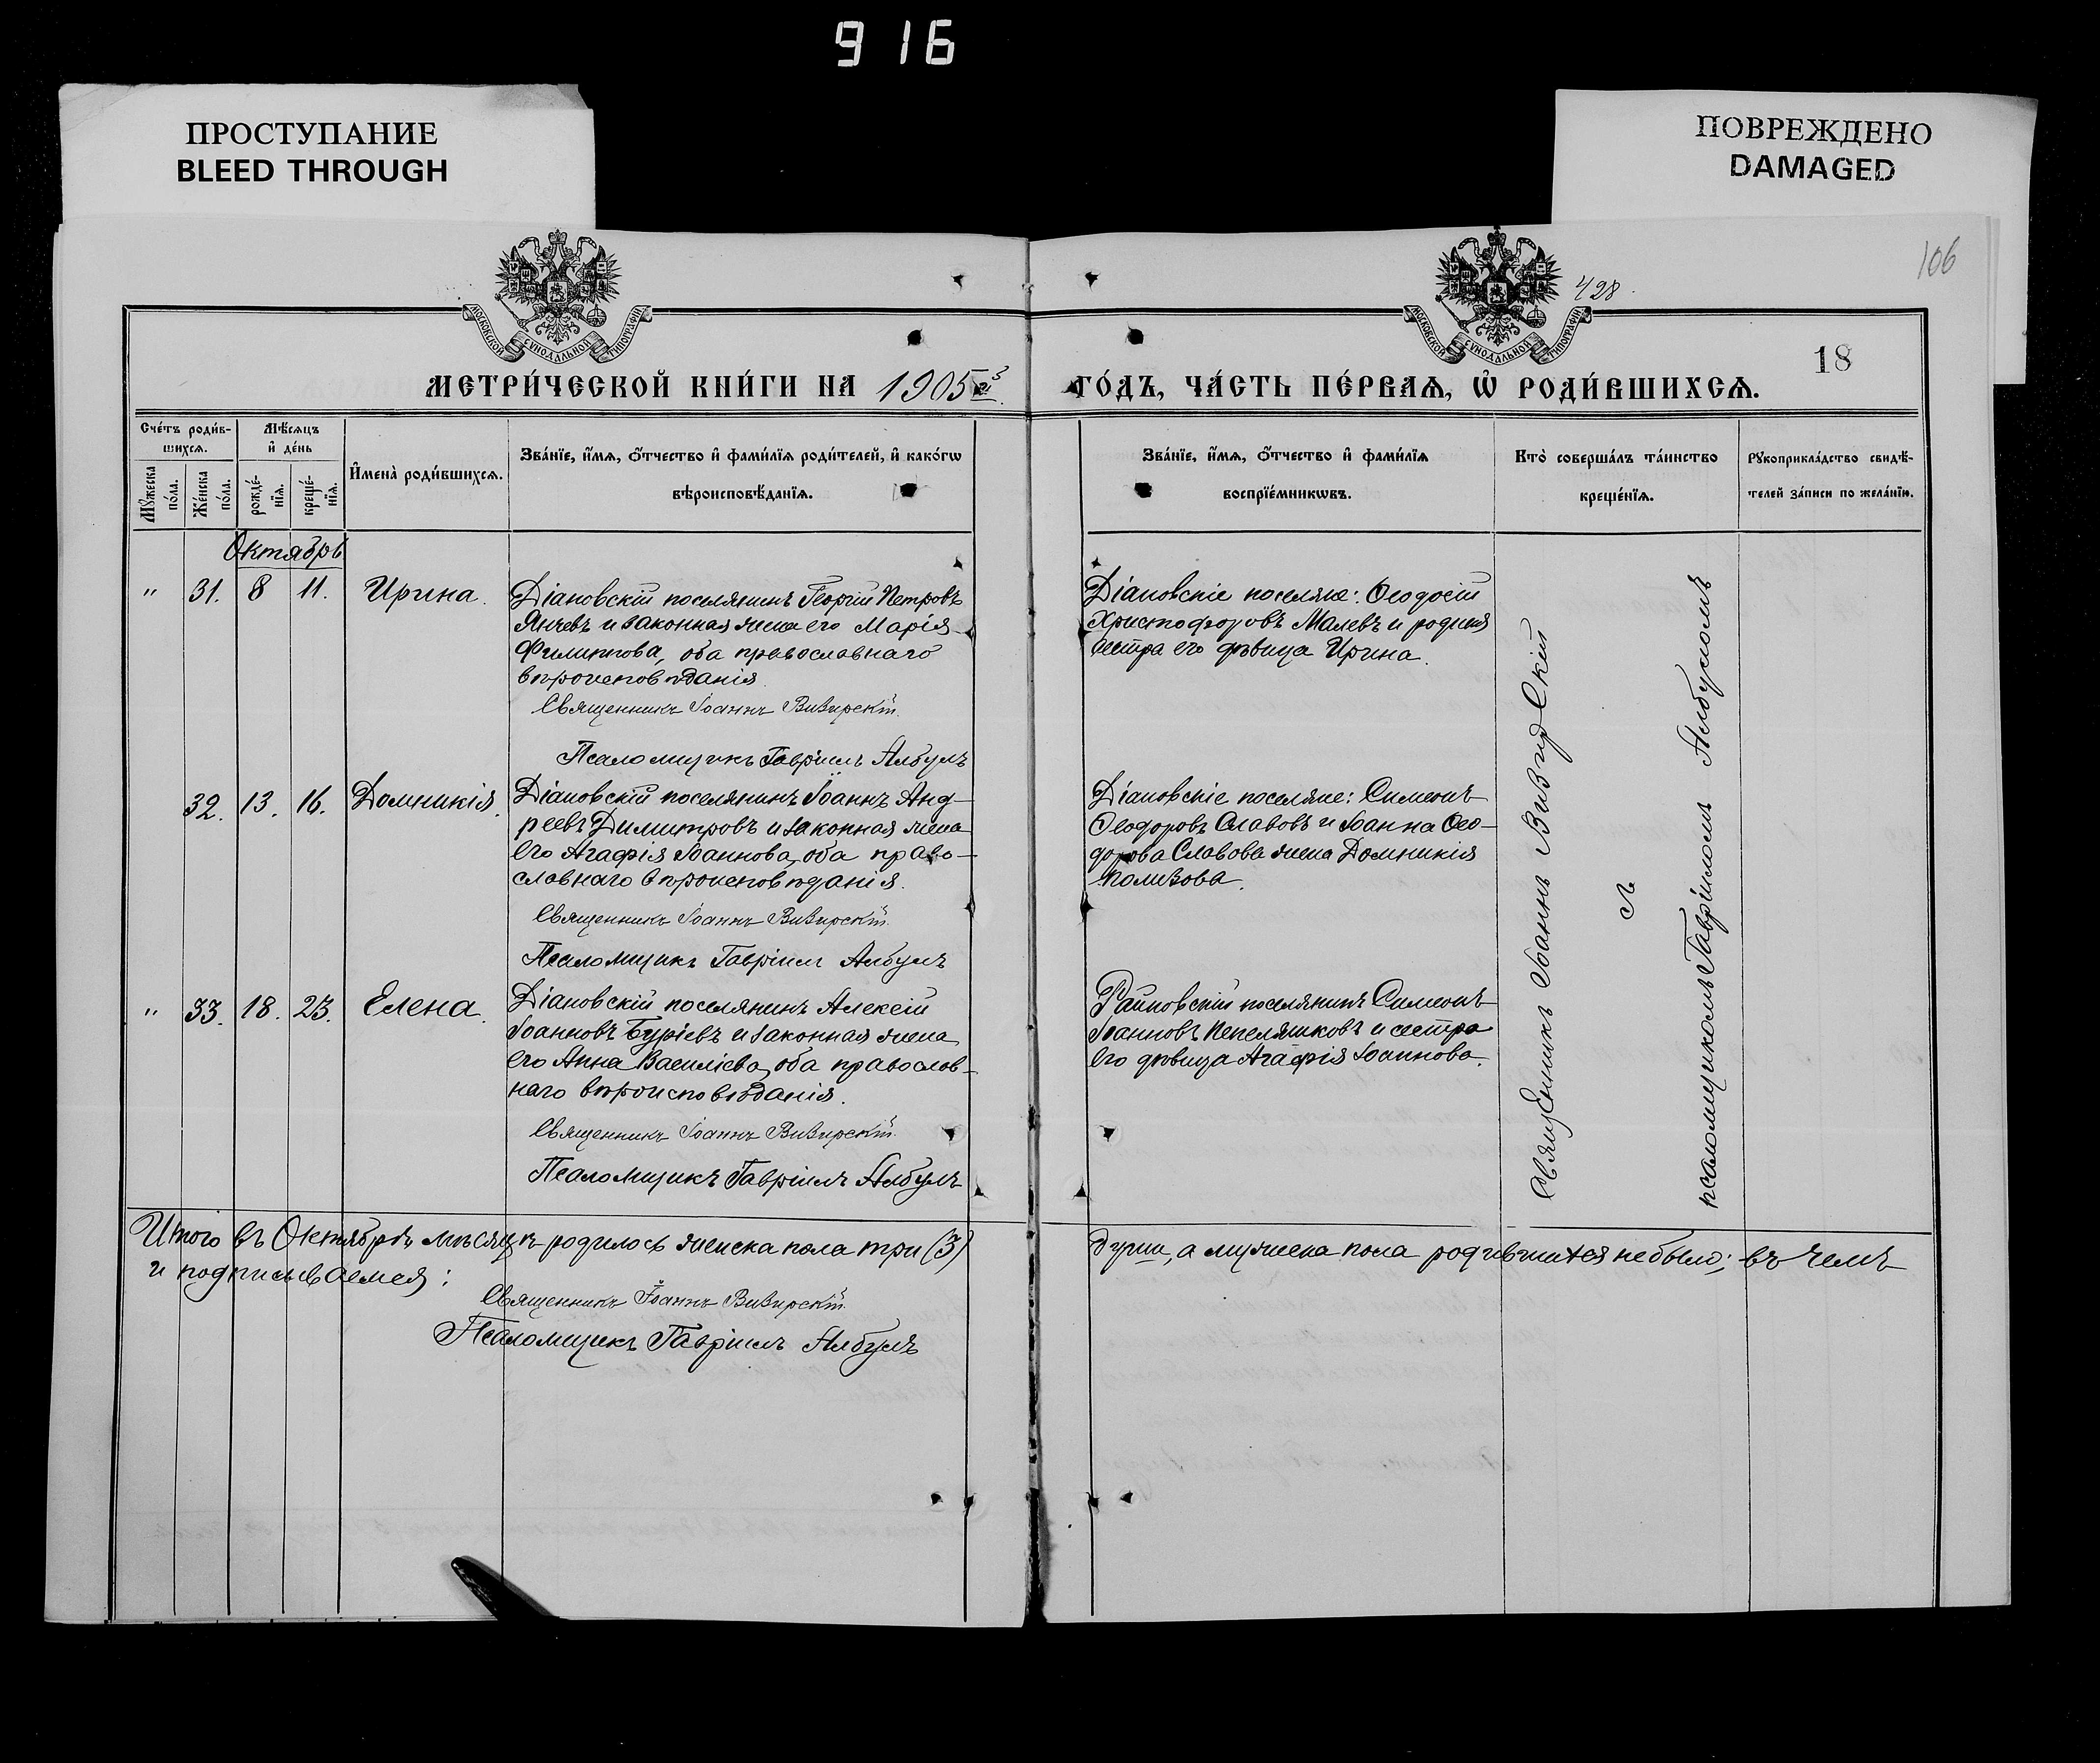 916
ПРОСТУПАНИЕ
BLEED THROUGH
ПОВРЕЖДЕНО
DAMAGED
106
428
18
МОСКОВСКОЙ СѴНОДАЛЬНОЙ ТИПОГРАФІИ
МОСКОВСКОЙ СѴНОДАЛЬНОЙ ТИПОГРАФІИ
МЕТРИ́ЧЕСКОЙ КНИ́ГИ НА 1905 ГО́ДЪ, ЧА́СТЬ ПЕ́РВАѦ, Ѡ҆ РОДИ́ВШИХСѦ.
Сче́тъ роди́в-
шихсѧ.
Мꙋ́жеска по́ла.
Же́нска по́ла.
Мѣ́сѧцъ
и҆ де́нь
рожде́-
нїѧ.
креще́-
нїѧ.
И҆мена̀ роди́вшихсѧ.
Зва́нїе, и҆́мѧ, ѻ҆́тчество и҆ фами́лїѧ роди́телей, и҆ како́гѡ
вѣроисповѣ́данїѧ.
Зва́нїе, и҆́мѧ, ѻ҆́тчество и҆ фами́лїѧ
воспрїе́мникѡвъ.
Кто̀ соверша́лъ та́инство
креще́нїѧ.
Рꙋкоприкла́дство свидѣ́-
телей за́писи по жела́нїю.
Октябрь
" 31. 8 11. Ирина.
Діановскій поселянинъ Георгій Петровъ
Янчевъ и законная жена его Марія
Филиппова, оба православнаго
вѣроисповѣданія.
Священникъ Іоаннъ Вивирскій.
Псаломщикъ Гавріилъ Албулъ
Діановскіе поселяне: Ѳеодосій
Христофоровъ Малевъ и родная
сестра его дѣвица Ирина.
32. 13. 16. Домникія.
Діановскій поселянинъ Іоаннъ Анд-
реевъ Димитровъ и законная жена
его Агафія Іоаннова, оба право-
славнаго вѣроисповѣданія.
Священникъ Іоаннъ Вивирскій.
Псаломщикъ Гавріилъ Албулъ
Діановскіе поселяне: Симеонъ
Ѳеодоровъ Славовъ и Іоанна Ѳео-
дорова Славова жена Домникія
" 33. 18. 23. Елена.
Діановскій поселянинъ Алексій
Іоанновъ Буріевъ и законная жена
его Анна Василіева, оба православ-
наго вѣроисповѣданія.
Священникъ Іоаннъ Вивирскій.
Псаломщикъ Гавріилъ Албулъ
поселянинъ Симеонъ
Іоанновъ Пепеляшковъ и сестра
его дѣвица Агафія Іоаннова.
Священникъ Іоаннъ Вивирскій
съ
псаломщикомъ Гавріиломъ Албуломъ
Итого въ Октябрѣ мѣсяцѣ родилось женска пола три (3) души, а мужеска пола родившихся не было; въ чемъ
и подписываемся:
Священникъ Іоаннъ Вивирскій.
Псаломщикъ Гавріилъ Албулъ